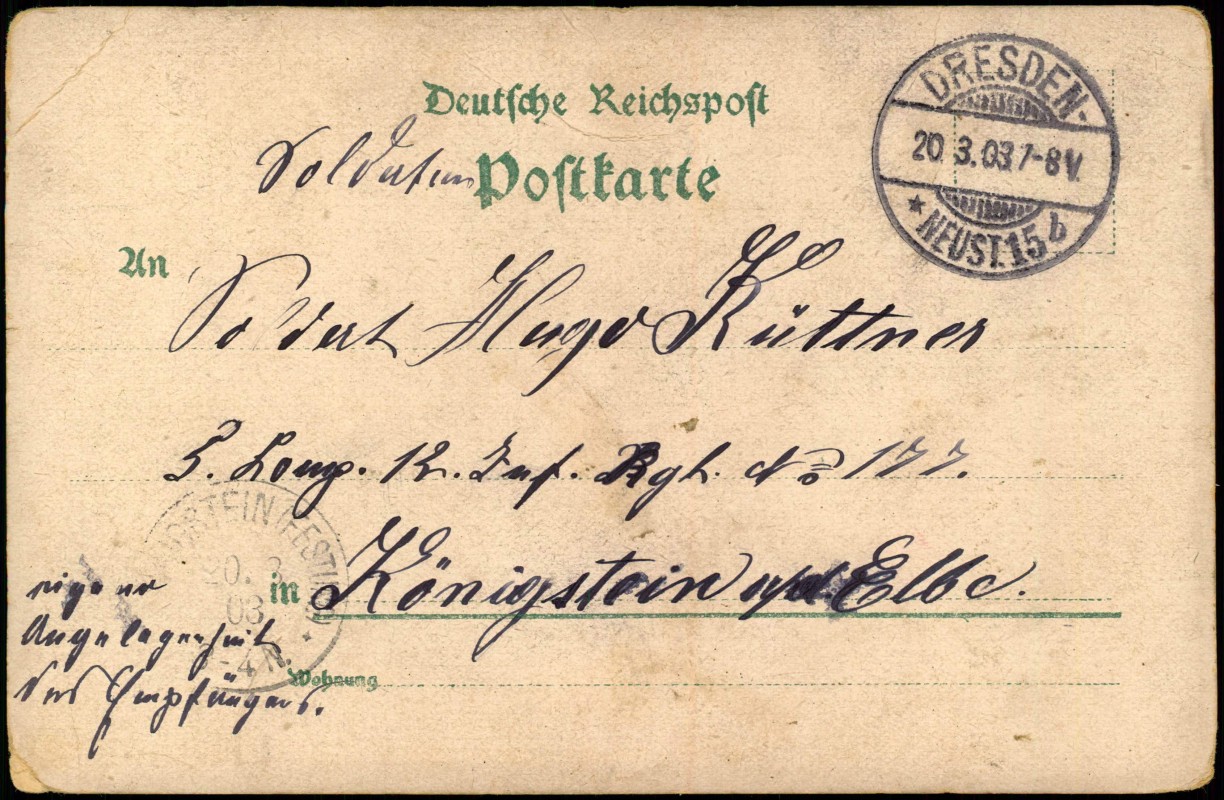 Deutsche Reichspost
Soldaten Postkarte
DRESDEN-
20.3.03.7-8V.
* NEUST.15 b
An Soldat Hugo Küttner
3. Comp. 12. Inf. Rgt. No 177.
in Königstein a/d. Elbe.
KÖNIGSTEIN (FESTUNG)
20.3.
03
-4 N.
eigene
Angelegenheit
des Empfängers.
Wohnung